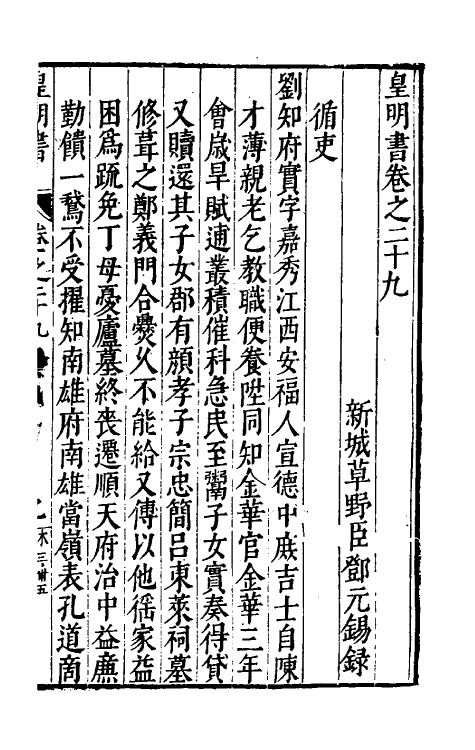 皇明書卷之二十九
新城草野臣鄧元錫錄
循吏
劉知府實字嘉秀江西安福人宣德中庶吉士自陳
才薄親老乞教職便養陞同知金華官金華三年
會歲旱賦逋叢積催科急民至鬻子女實奏得貸
又贖還其子女郡有顔孝子宗忠簡呂東萊祠墓
修葺之鄭義門合㸑久不能給又傅以他徭家益
困爲䟽免丁母憂廬墓終喪遷順天府治中益亷
勤饋一鵞不受擢知南雄府南雄當嶺表孔道商
皇明書
卷之二十九